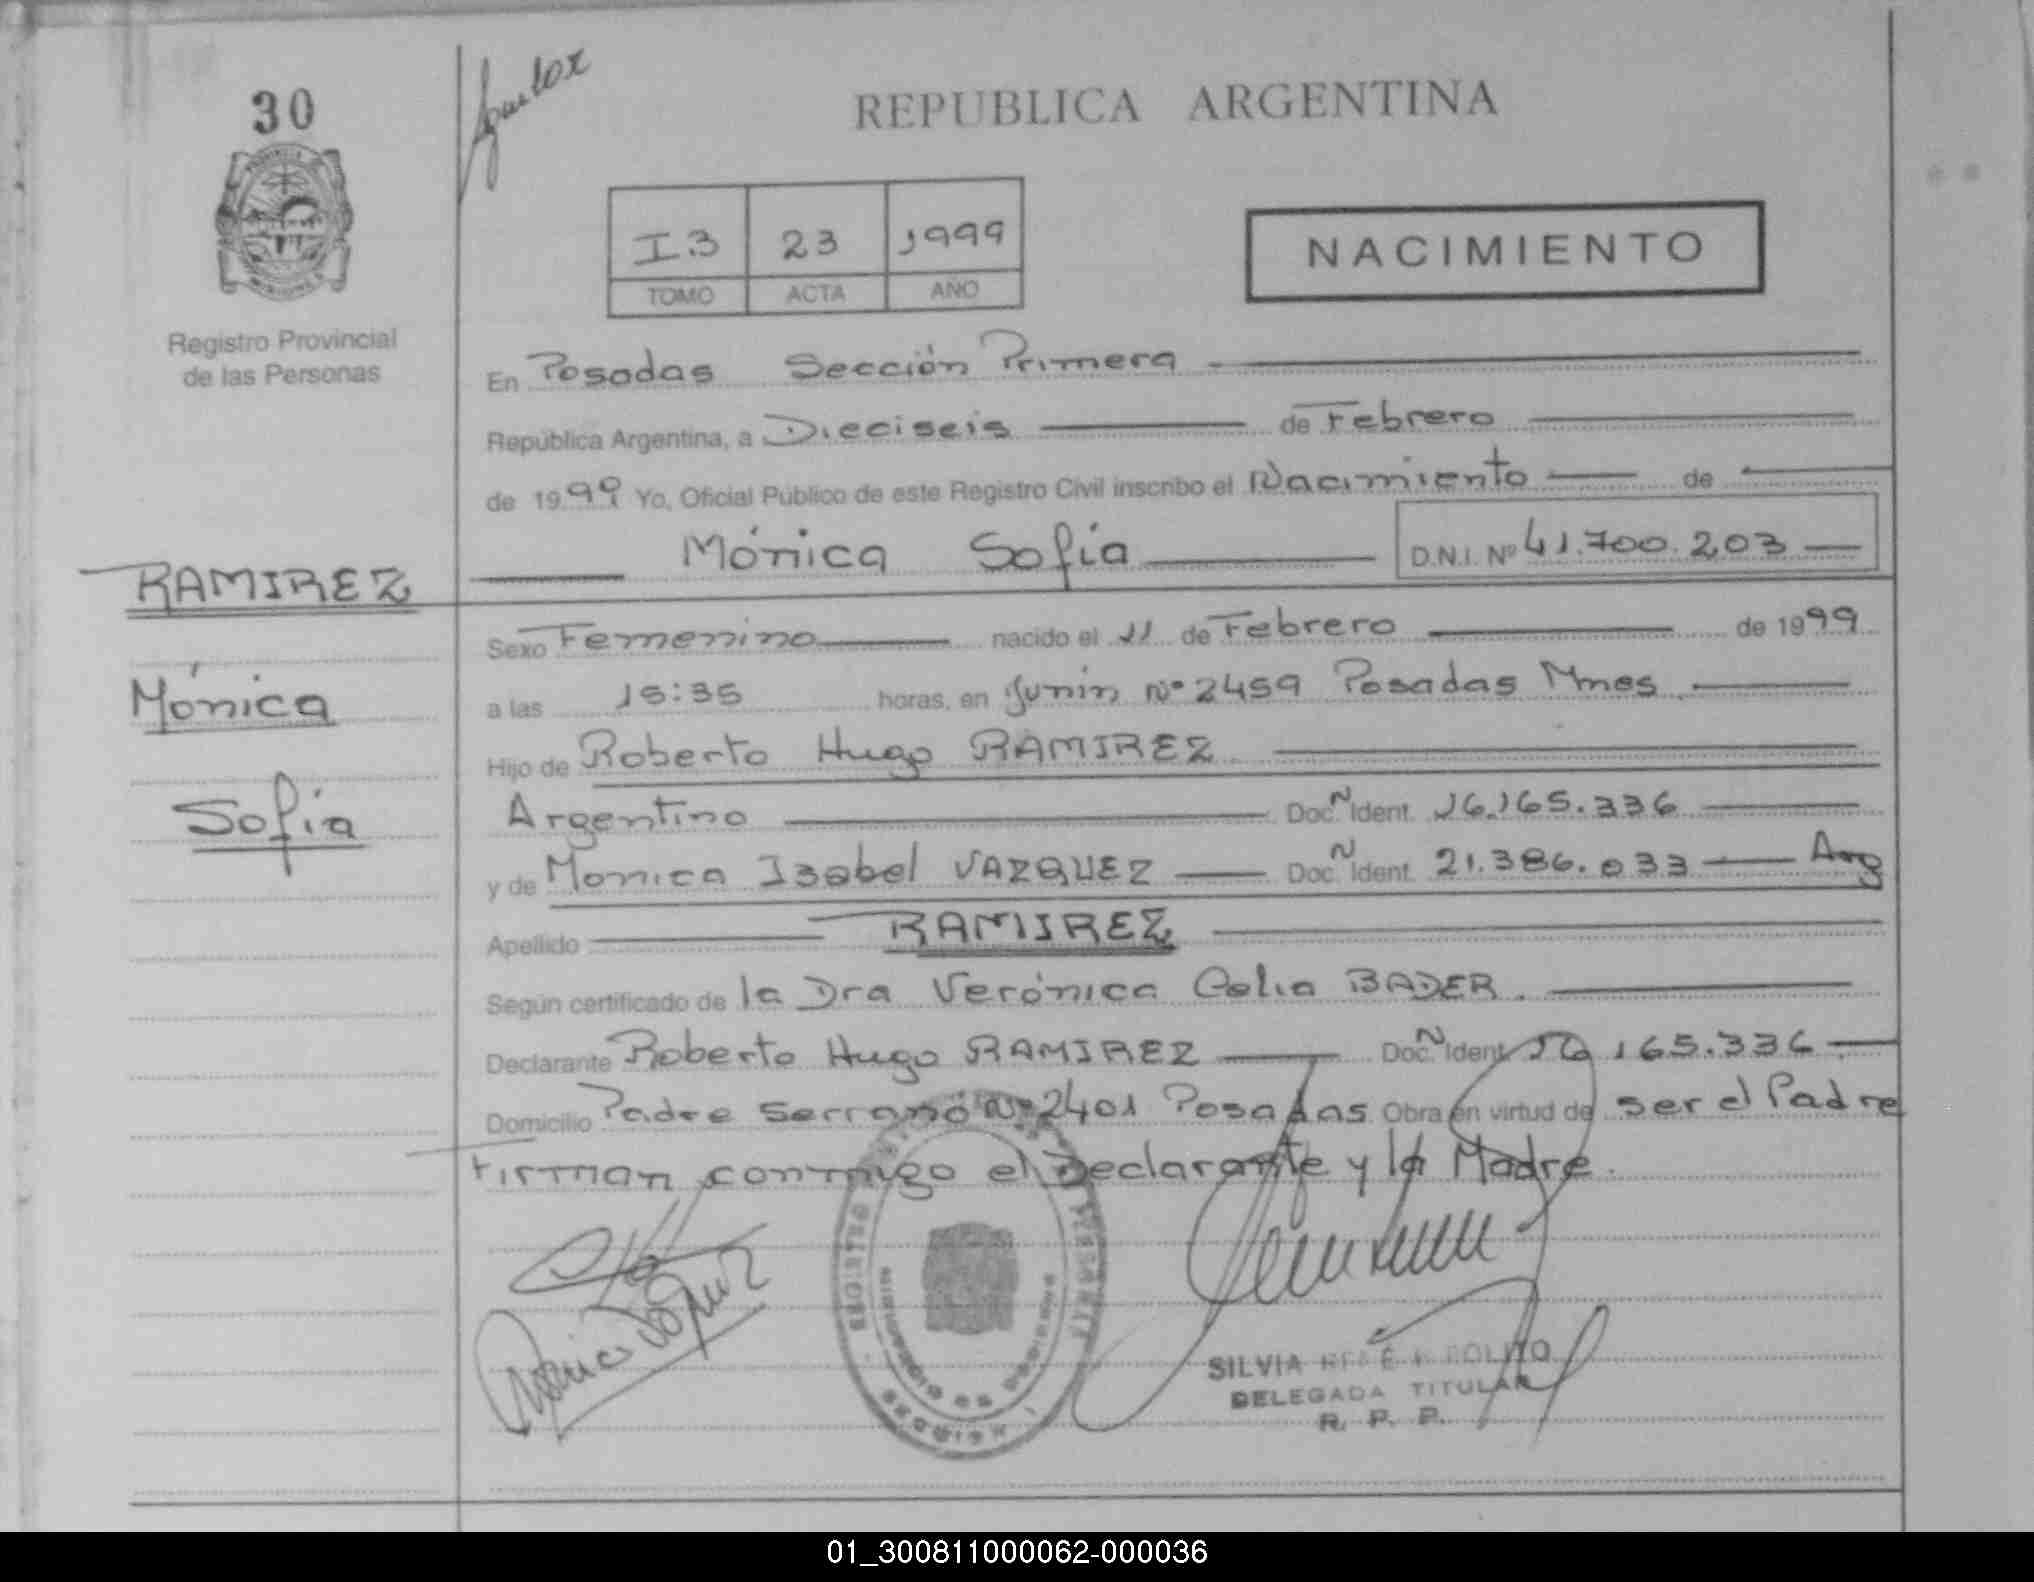 30
REPUBLICA ARGENTINA
I3 23 1999
TOMO ACTA AÑO
NACIMIENTO
Registro Provincial
de las Personas
En Posadas Sección Primera
República Argentina, a Dieciseis de Febrero
de 1999 Yo, Oficial Público de este Registro Civil inscribo el Nacimiento de
Mónica Sofía D.N.I. Nº 41.700.203
RAMIREZ
Mónica
Sofía
Sexo Femenino nacido el 11 de Febrero de 1999
a las 15:35 horas, en Junín Nº 2459 Posadas Mnes
Hijo de Roberto Hugo RAMIREZ
Argentino Doc. N Ident. 16.165.336
y de Monica Isabel VAZQUEZ Doc. N Ident. 21.386.033 Arg
Apellido RAMIREZ
Según certificado de la Dra Verónica Celia BADER.
Declarante Roberto Hugo RAMIREZ Doc. N Ident. 16.165.336
Domicilio Padre Serrano Nº 2401 Posadas Obra en virtud de ser el Padre
Firman conmigo el Declarante y la Madre.
SILVIA
DELEGADA TITULAR
R. P. P.
01_300811000062-000036